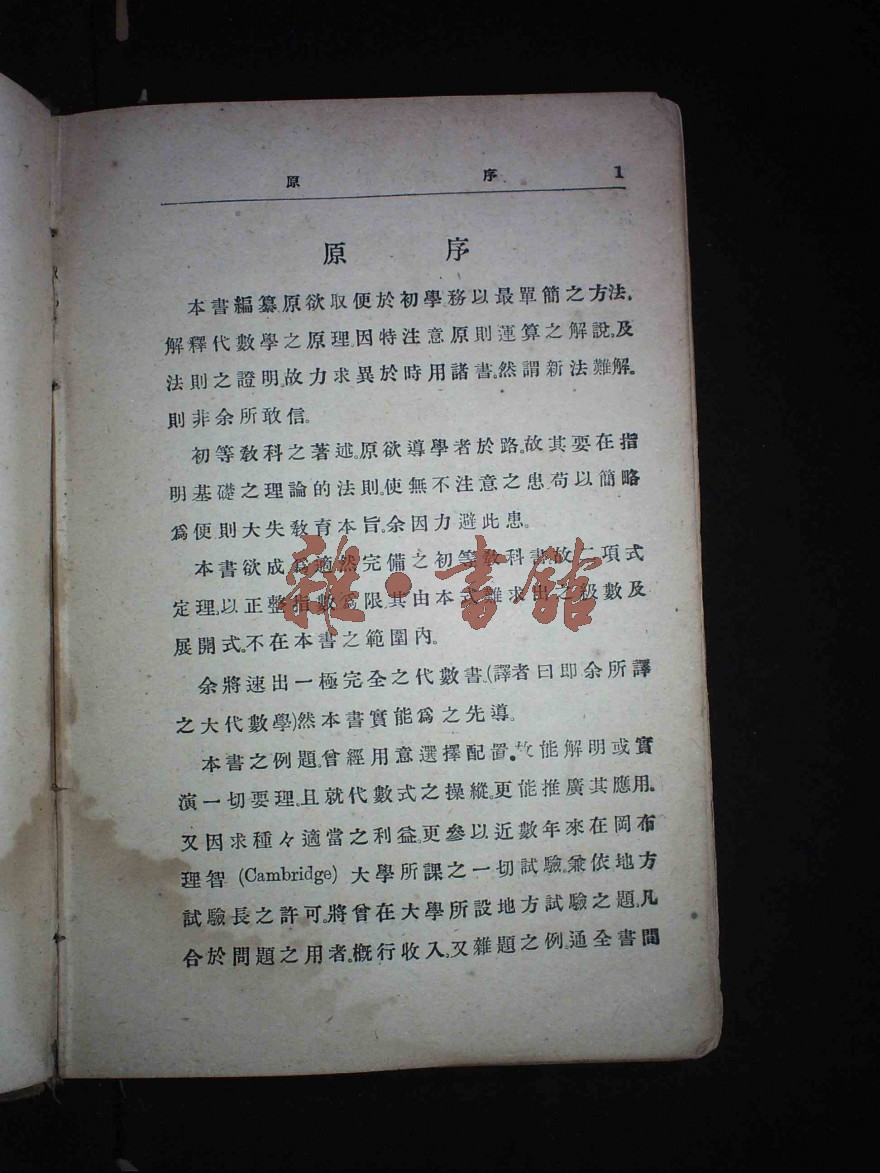 原 序 1
原 序
本書編纂原欲取便於初學務以最單簡之方法,
解釋代數學之原理。因特注意原則運算之解說。及
法則之證明。故力求異於時用諸書。然謂新法難解。
則非余所敢信。
初等敎科之著述。原欲導學者於路。故其要在指
明基礎之理論的法則。使無不注意之患苟以簡略
爲便則大失敎育本旨。余因力避此患。
本書欲成爲適然完備之初等敎科書。故二項式
定理。以正整指數爲限。其由本式難求出之級數及
展開式。不在本書之範圍內。
余將速出一極完全之代數書。(譯者曰即余所譯
之大代數學)然本書實能爲之先導。
本書之例題。曾經用意選擇配置。故能解明或實
演一切要理。且就代數式之操縱。更能推廣其應用。
又因求種々適當之利益。更參以近數年來在岡布
理智 (Cambridge) 大學所課之一切試驗。兼依地方
試驗長之許可。將曾在大學所設地方試驗之題。凡
合於問題之用者。槪行收入。又雜題之例。通全書間
雜·書館